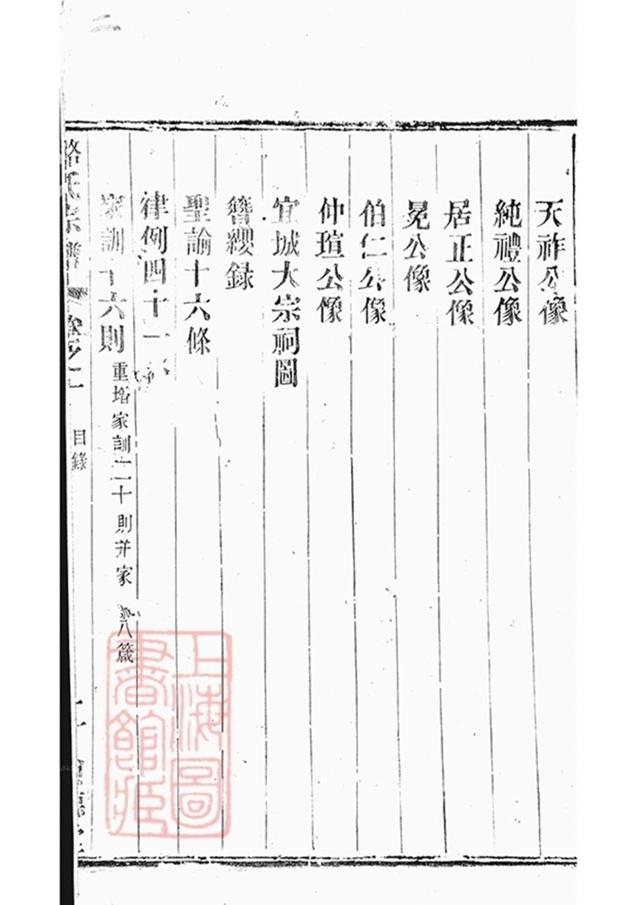 天祚公像
純禮公像
居正公像
晃公像
伯仁公像
仲瑄公像
宜城大宗祠圖
簪纓錄
聖諭十六條
律例四十一條
家訓十六則 重增家訓二十則并家 八箴
氏宗譜 卷之一 目錄
上海圖書館藏